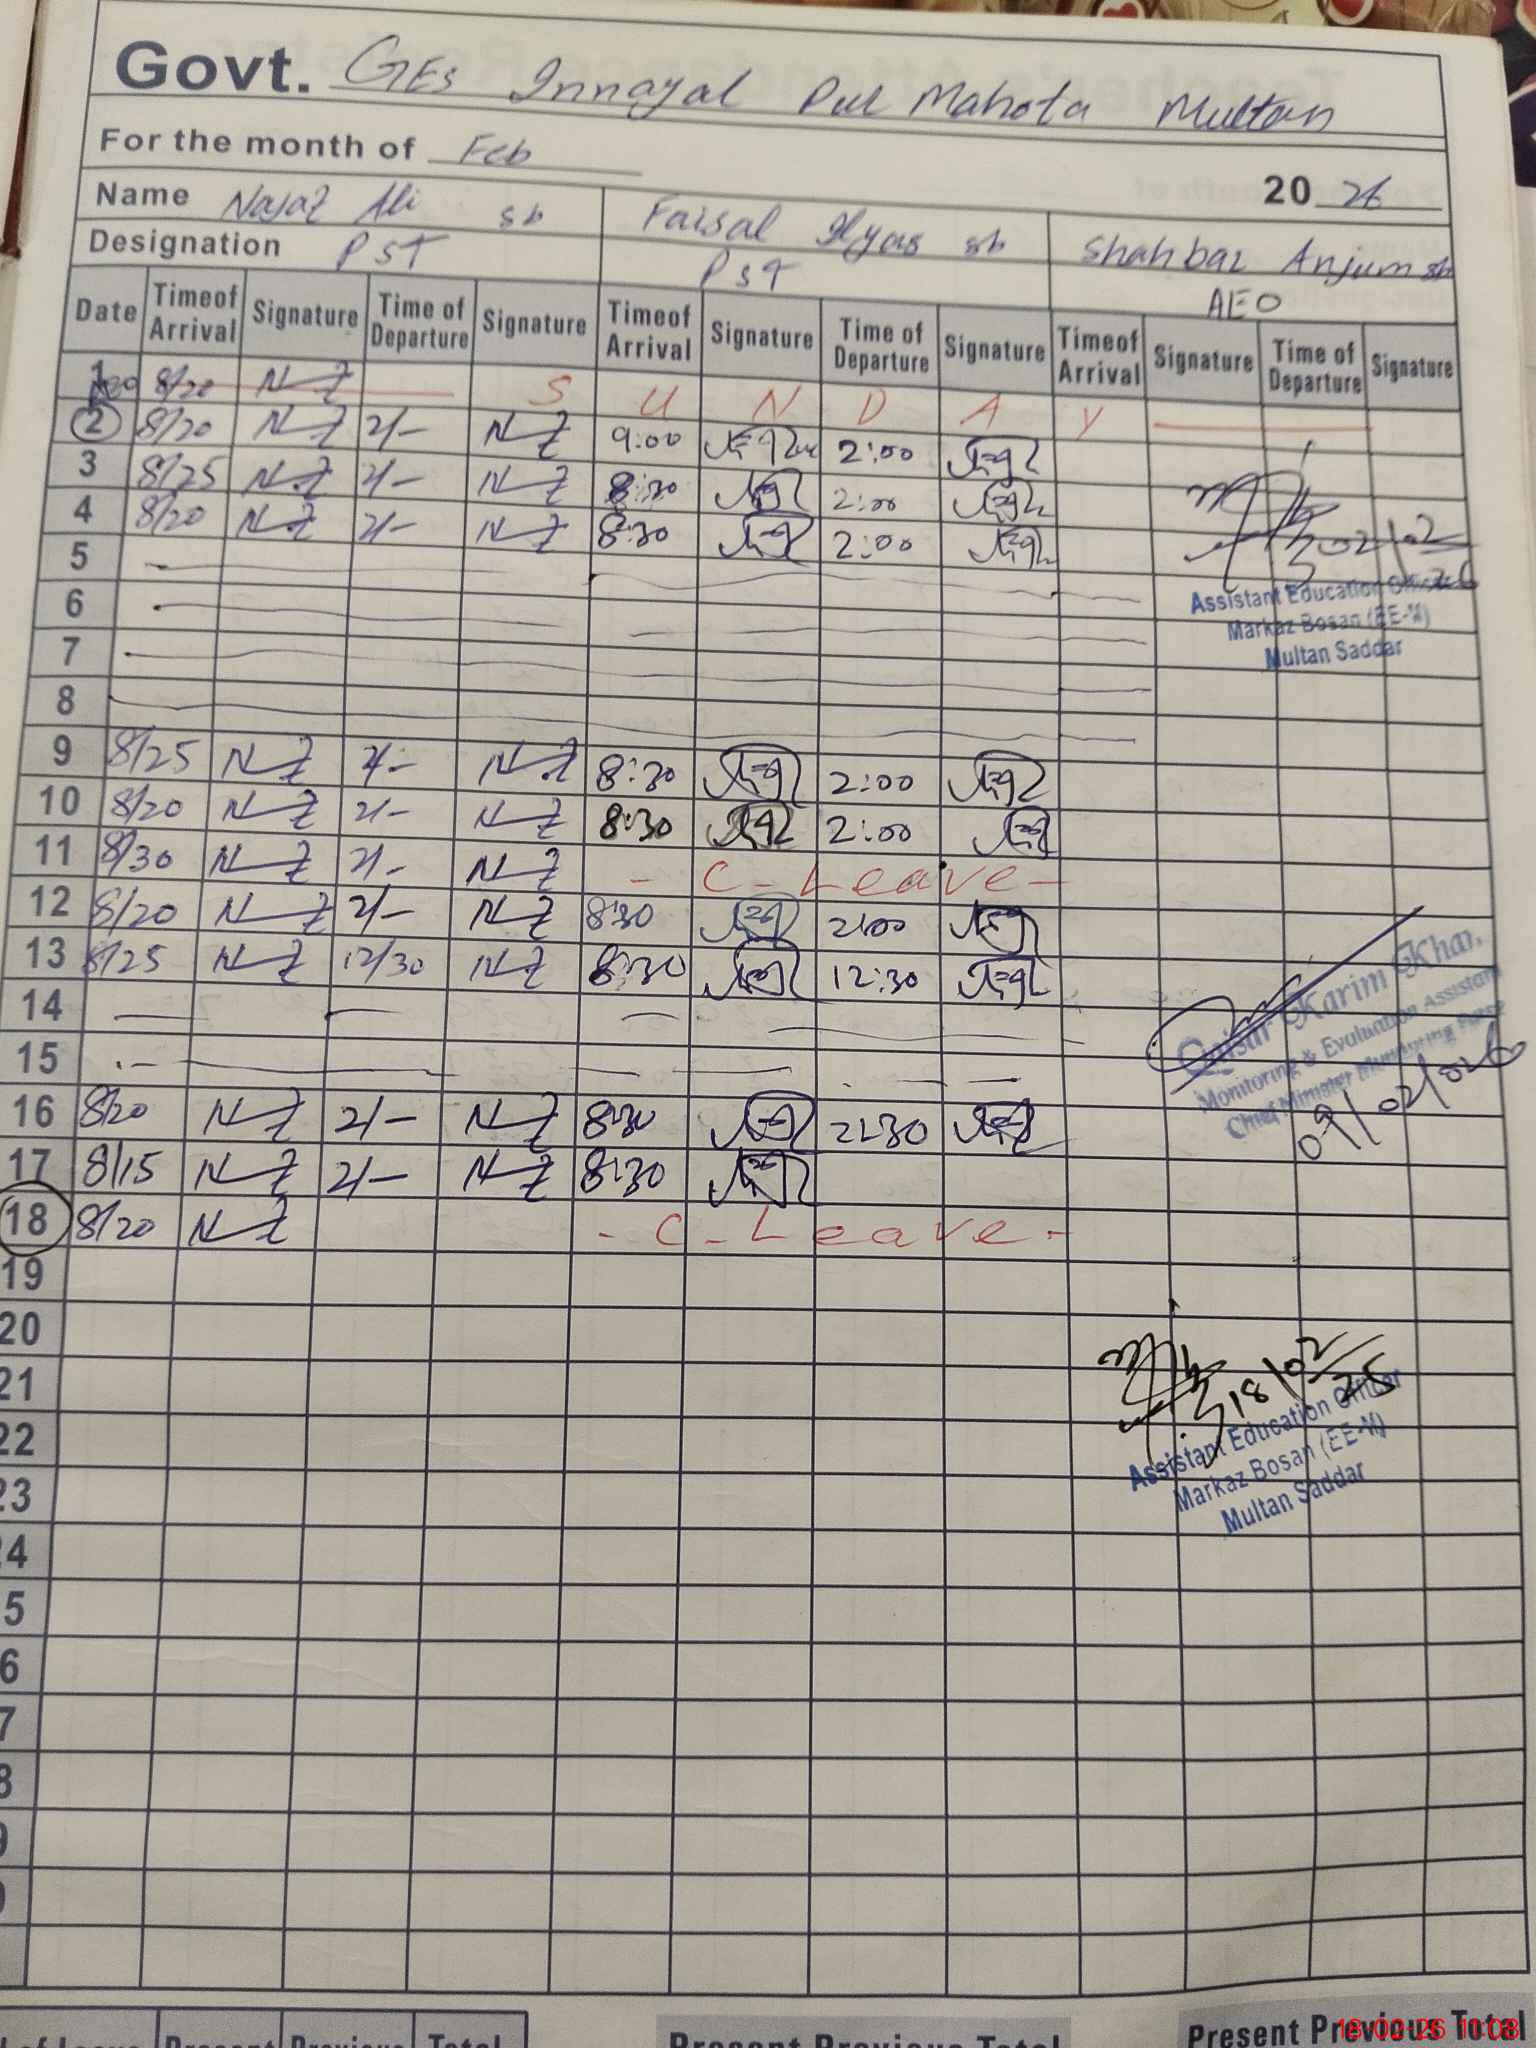 Govt. GES Innayal Pul Mahota Multan
For the month of Feb
2026
Name Nayaz Ali sb Faisal Ilyas sb Shahbaz Anjum sb
Designation PST PST AEO
Date Timeof Arrival Signature Time of Departure Signature Timeof Arrival Signature Time of Departure Signature Timeof Arrival Signature Time of Departure Signature
1 8/20 NZ S U N D A Y
2 8/20 NZ 2/- NZ 9:00 2:00
3 8/25 NZ 2/- NZ 8:30 2:00
4 8/20 NZ 2/- NZ 8:30 2:00
5
02/02/26
6
Assistant Education Officer
Markaz Bosan (EE-M)
Multan Saddar
7
8
9 8/25 NZ 2/- NZ 8:30 2:00
10 8/20 NZ 2/- NZ 8:30 2:00
11 8/30 NZ 2/- NZ - C - Leave -
12 8/20 NZ 2/- NZ 8:30 2:00
13 8/25 NZ 12/30 NZ 8:30 12:30
14
15
Qaisar Karim Khan,
Monitoring & Evaluation Assistant
Chief Minister Monitoring Force
09/02/026
16 8/20 NZ 2/- NZ 8:30 2:30
17 8/15 NZ 2/- NZ 8:30
18 8/20 NZ - C - Leave -
19
20
21
18/02/25
Assistant Education Officer
Markaz Bosan (EE-M)
Multan Saddar
22
23
24
5
6
7
8
9
0
l of Leave Present Previous Total Present Previous Total Present Previous Total